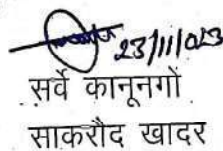 23/11/023
सर्वे कानूनगों
साकरौद खादर